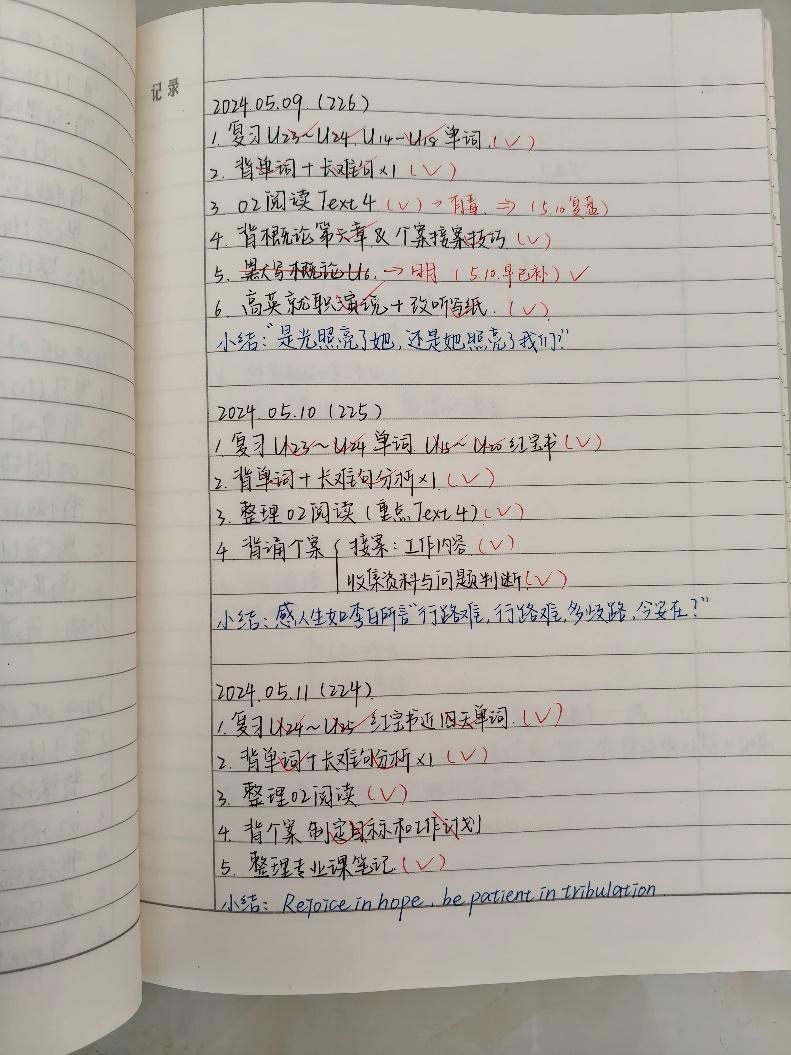 记录
2024.05.09.(226)
1. 复习U23~U24, U14-U18单词.(√)
2. 背单词+长难句×1(√)
3 02阅读Text4(√)→有毒.⇒(5.10复盘)
4. 背概论第六章&个案接案技巧(√)
5. 默写概论U6.→明(5.10.早已补)√
6. 高英就职演说+改听写纸.(√)
小结:"是光照亮了她,还是她照亮了我们?"
2024.05.10(225)
1 复习U23~U24单词. U15~U20红宝书(√)
2. 背单词+长难句分析×1.(√)
3. 整理02阅读(重点Text4)(√)
4 背诵个案{接案:工作内容(√)
收集资料与问题判断(√)
小结:感人生如李白所言"行路难,行路难,多歧路,今安在?"
2024.05.11(224)
1. 复习U24~U25 红宝书近四天单词.(√)
2. 背单词+长难句分析×1(√)
3. 整理02阅读(√)
4. 背个案 制定目标和工作计划
5. 整理专业课笔记(√)
小结: Rejoice in hope, be patient in tribulation